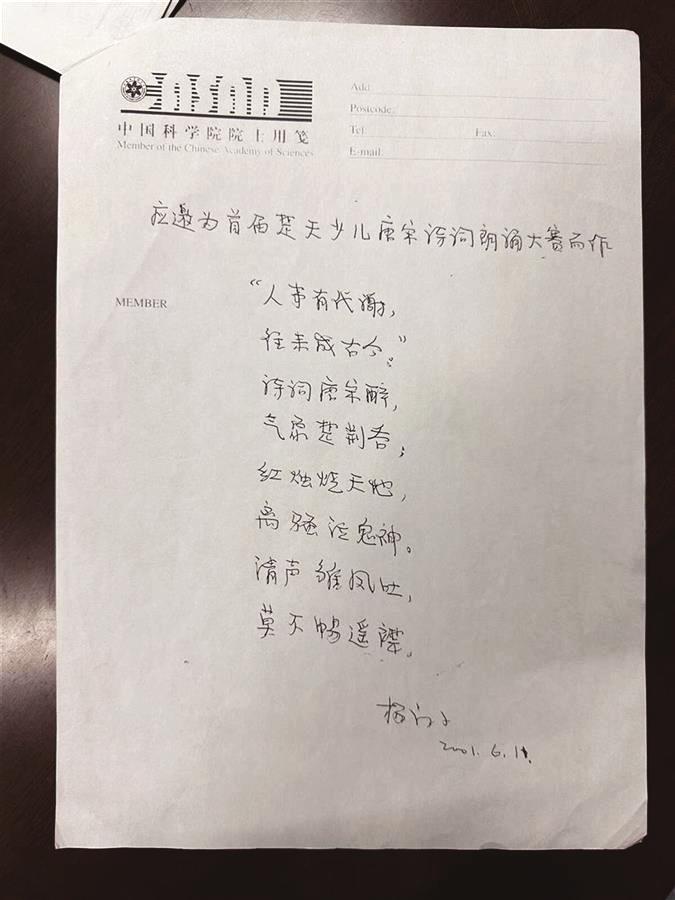 中国科学院院士用笺
Member of the Chinese Academy of Sciences
Add.
Postcode.
Tel. Fax.
E-mail.
应邀为首届楚天少儿唐宋诗词朗诵大赛而作
MEMBER
“人事有代谢，
往来成古今。”
诗词唐宋醉，
气象楚荆吞；
红烛烧天地，
离骚泣鬼神。
清声雏凤吐，
莫不畅遥襟。
杨
2001.6.11.